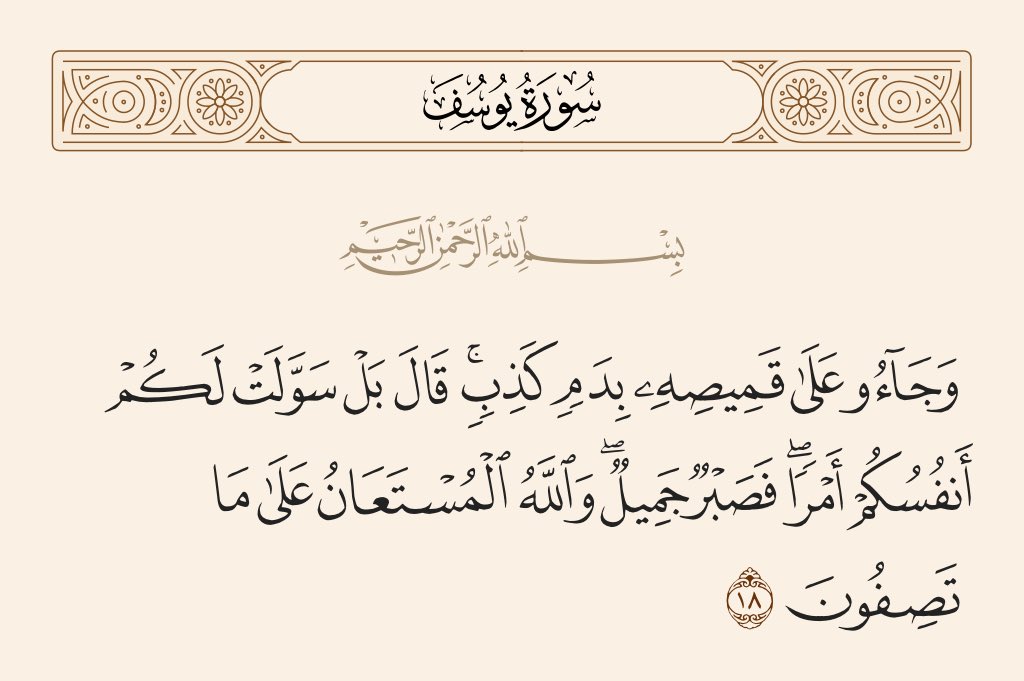 سُورَةُ يُوسُفَ
بِسْمِ ٱللَّهِ ٱلرَّحْمَٰنِ ٱلرَّحِيمِ
وَجَآءُو عَلَىٰ قَمِيصِهِۦ بِدَمٍۢ كَذِبٍۢ ۚ قَالَ بَلْ سَوَّلَتْ لَكُمْ
أَنفُسُكُمْ أَمْرًۭا ۖ فَصَبْرٌۭ جَمِيلٌۭ ۖ وَٱللَّهُ ٱلْمُسْتَعَانُ عَلَىٰ مَا
تَصِفُونَ ١٨